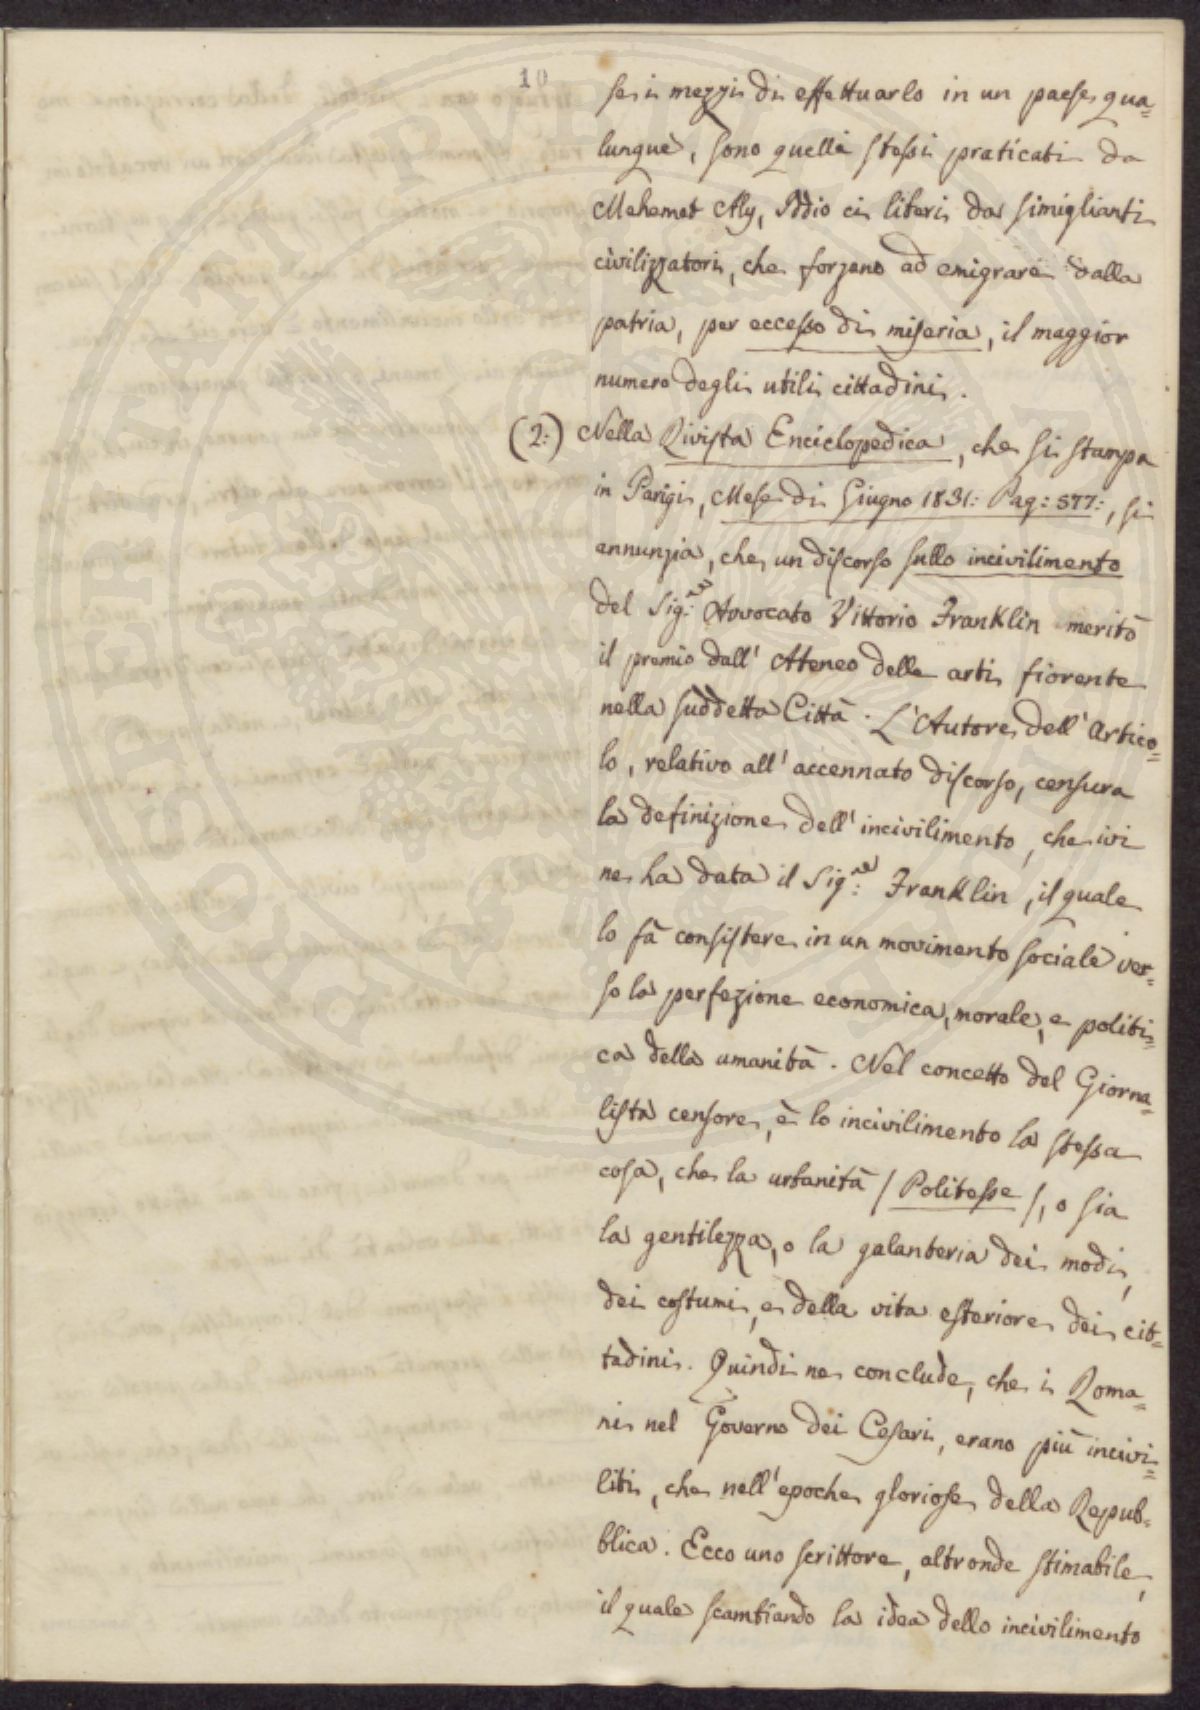 10
se i mezzi di effettuarlo in un paese qua=
lunque, sono quelli stessi praticati da
Mehemet Aly, Iddio ci liberi da simiglianti
civilizzatori, che forzano ad emigrare dalla
patria, per eccesso di miseria, il maggior
numero degli utili cittadini.
(2:) Nella Rivista Enciclopedica, che si stampa
in Parigi, Mese di Giugno 1831: Pag: 577:, si
annunzia, che un discorso sullo incivilimento
del Sig:re Avvocato Vittorio Franklin meritò
il premio dall' Ateneo delle arti fiorente
nella suddetta Città. L'Autore dell'Artico=
lo, relativo all'accennato discorso, censura
la definizione dell'incivilimento, che ivi
ne ha data il Sig:re Franklin, il quale
lo fà consistere in un movimento sociale ver=
so la perfezione economica, morale, e politi=
ca della umanità. Nel concetto del Giorna=
lista censore, è lo incivilimento la stessa
cosa, che la urbanità / Politesse /, o sia
la gentilezza, o la galanteria dei modi,
dei costumi, e della vita esteriore dei cit=
tadini. Quindi ne conclude, che i Roma=
ni nel Governo dei Cesari, erano più incivi=
liti, che nell'epoche gloriose della Repub=
blica. Ecco uno scrittore, altronde stimabile,
il quale scambiando la idea dello incivilimento